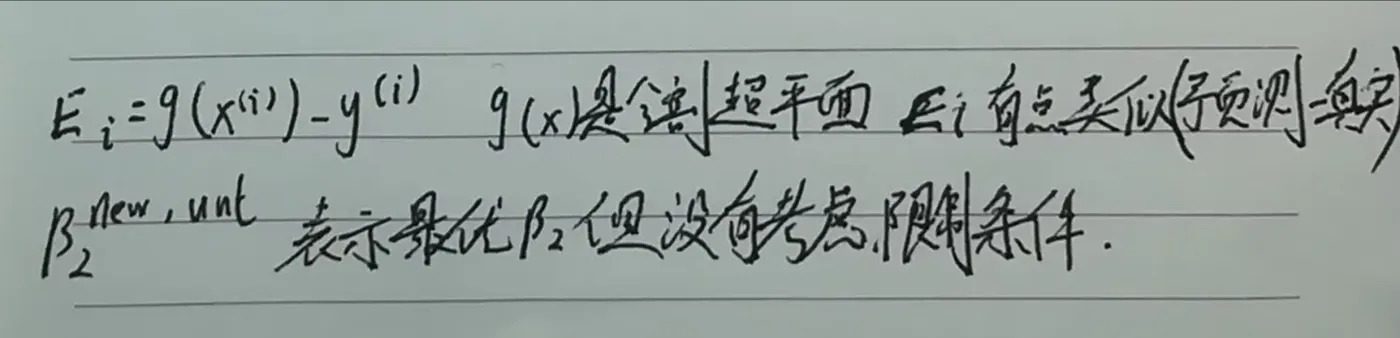 E_i = g(x^(i)) - y^(i) g(x)是分割超平面 E_i 有点类似(预测-真实)
β_2^new,unt 表示最优β_2但没有考虑限制条件.